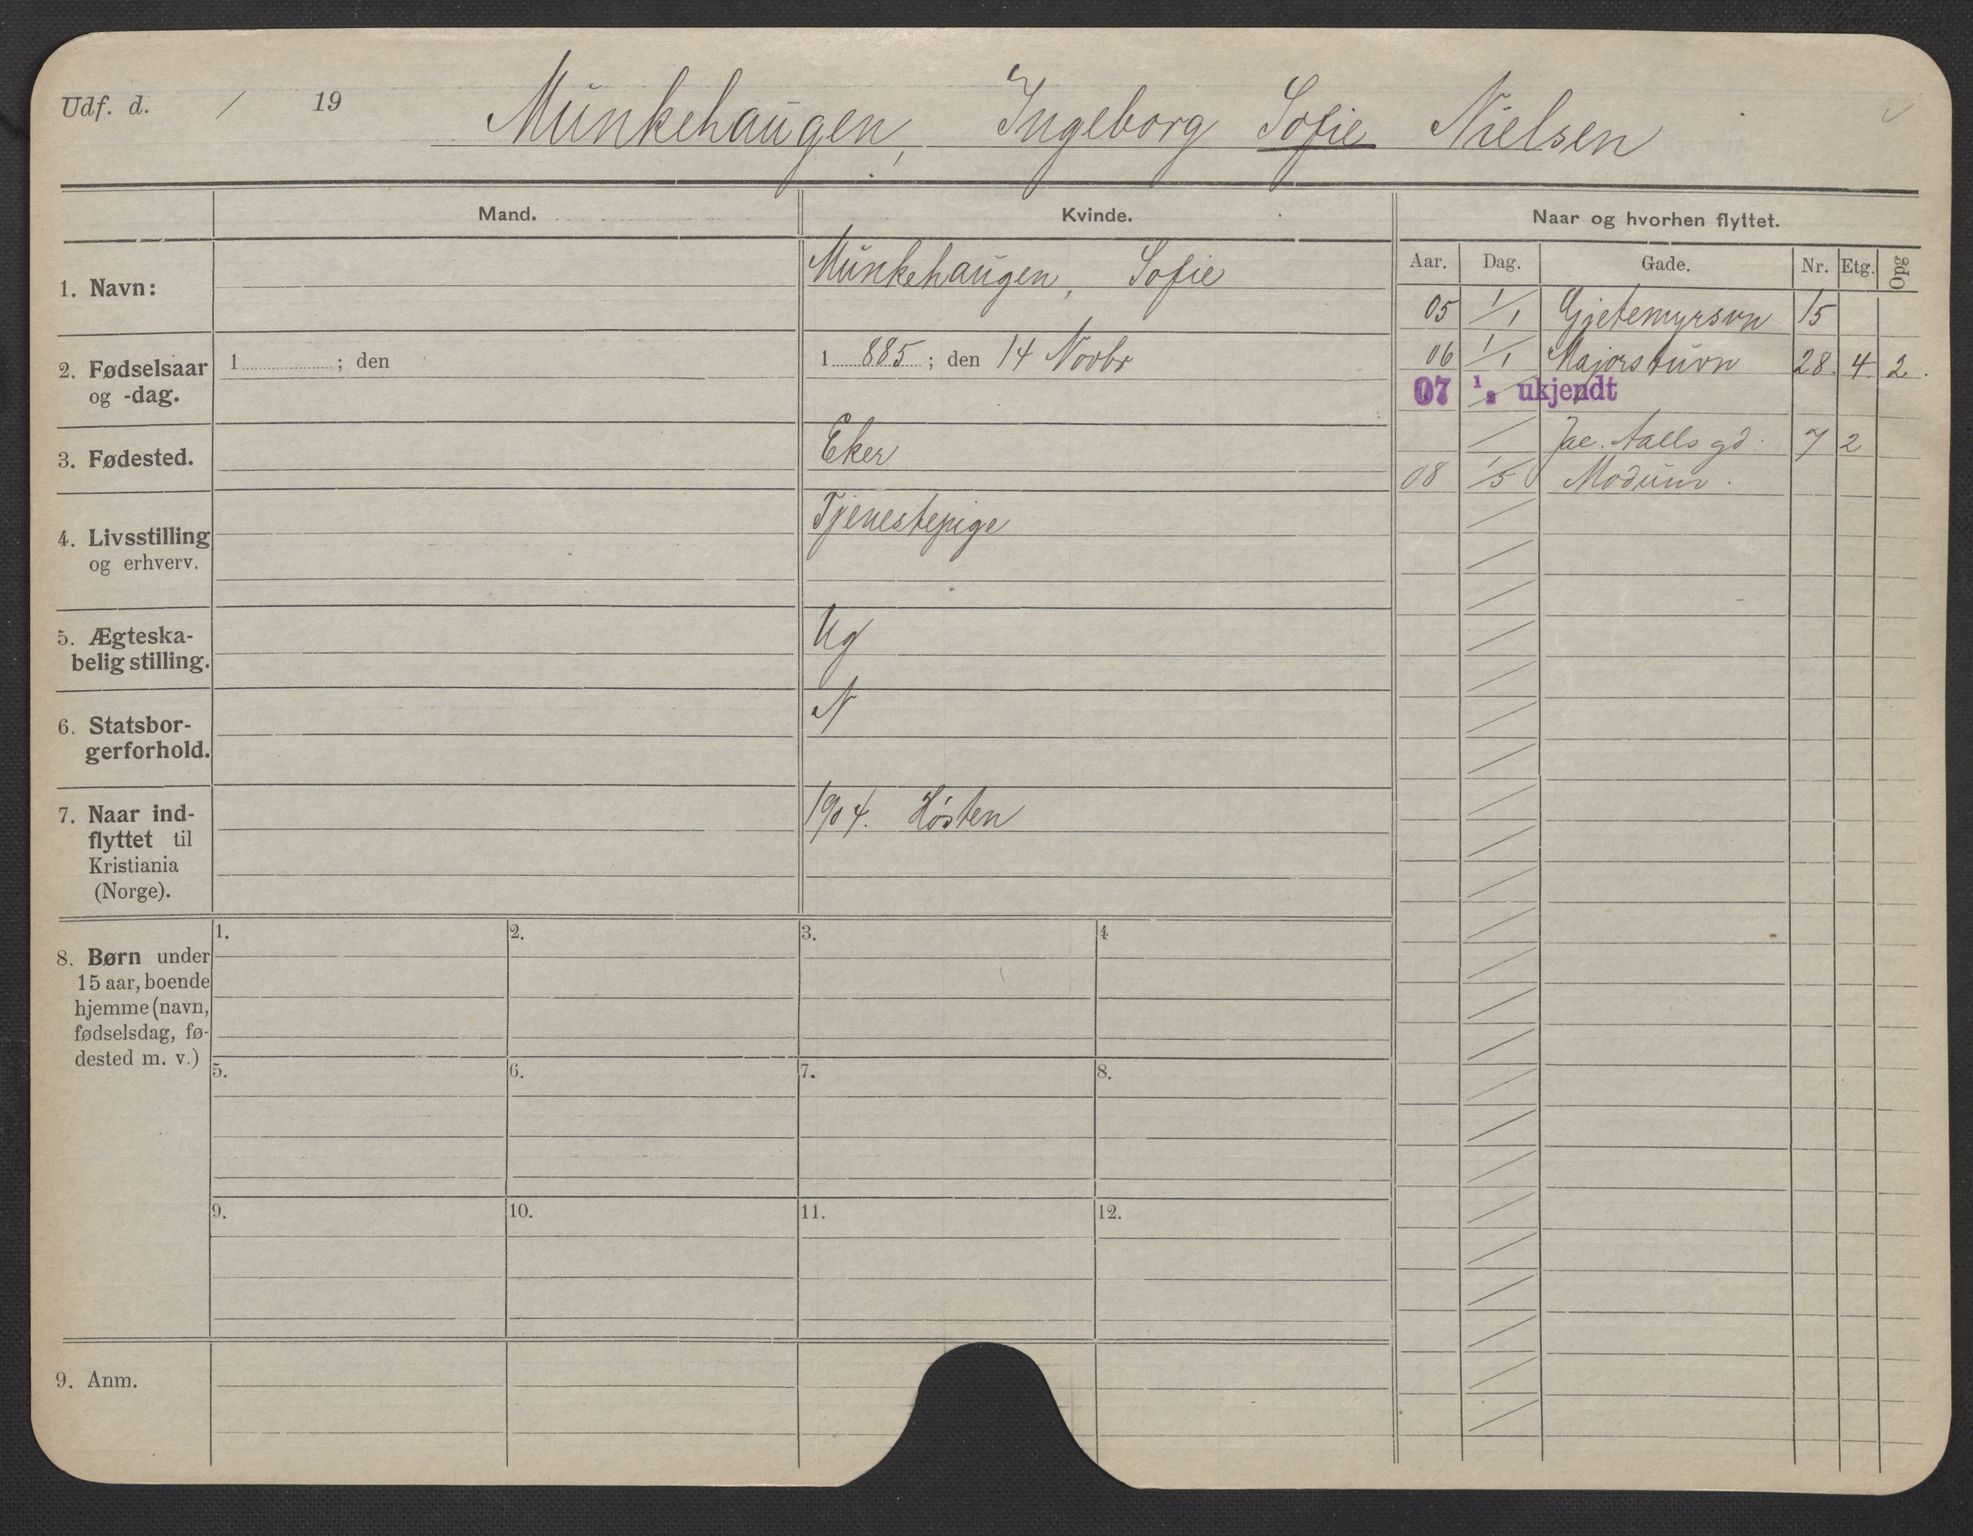 Udf. d. / 19 Munkehaugen, Ingeborg Sofie Nielsen
Mand. Kvinde. Naar og hvorhen flyttet.
Aar. Dag. Gade. Nr. Etg. Opg
1. Navn: Munkehaugen, Sofie
05 1/1 Gjetemyrsvn 15
2. Fødselsaar
og -dag.
1 ; den
1 885 ; den 14 Novbr
06 1/1 Majorstuvn 28. 4 2.
07 1/2 ukjendt
Jac. Aalls gd. 7 2
3. Fødested. Eker
08 1/5 Modum.
4. Livsstilling
og erhverv.
Tjenestepige
5. Ægteska-
belig stilling.
Ug
6. Statsbor-
gerforhold.
N
7. Naar ind-
flyttet til
Kristiania
(Norge).
1904. Høsten
8. Børn under
15 aar, boende
hjemme (navn,
fødselsdag, fø-
dested m. v.)
1. 2. 3. 4
5. 6. 7. 8.
9. 10. 11. 12.
9. Anm.